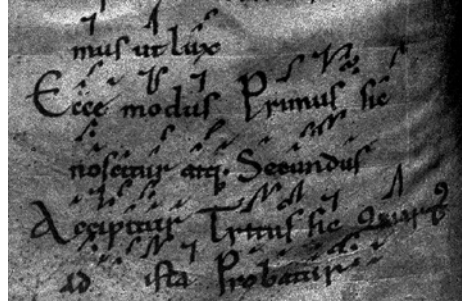 mus ut lux
Ecce modus Primus sic
noscitur atq. Secundus
Accipitur Tritus sic Quart9
ad ista Probatur